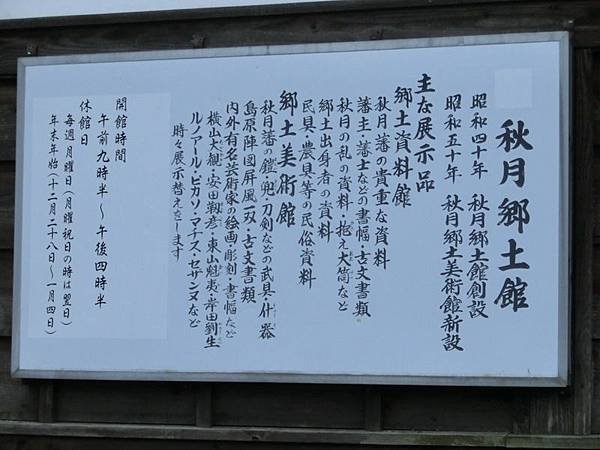 秋月郷土館
昭和四十年 秋月郷土館創設
昭和五十年 秋月郷土美術館新設
主な展示品
郷土資料館
秋月藩の貴重な資料
藩主・藩士などの書幅・古文書類・
秋月の乱の資料・抱え大筒など
郷土出身者の資料
民具・農具等の民俗資料
郷土美術館
秋月藩の鎧兜・刀剣などの武具・什器
島原陣図屏風一双・古文書類
内外有名芸術家の絵画・彫刻・書幅など
横山大観・安田靫彦・東山魁夷・岸田劉生
ルノアール・ピカソ・マチス・セザンヌなど
時々展示替えをします
開館時間
午前九時半〜午後四時半
休館日
毎週月曜日(月曜祝日の時は翌日)
年末年始(十二月二十八日〜一月四日)